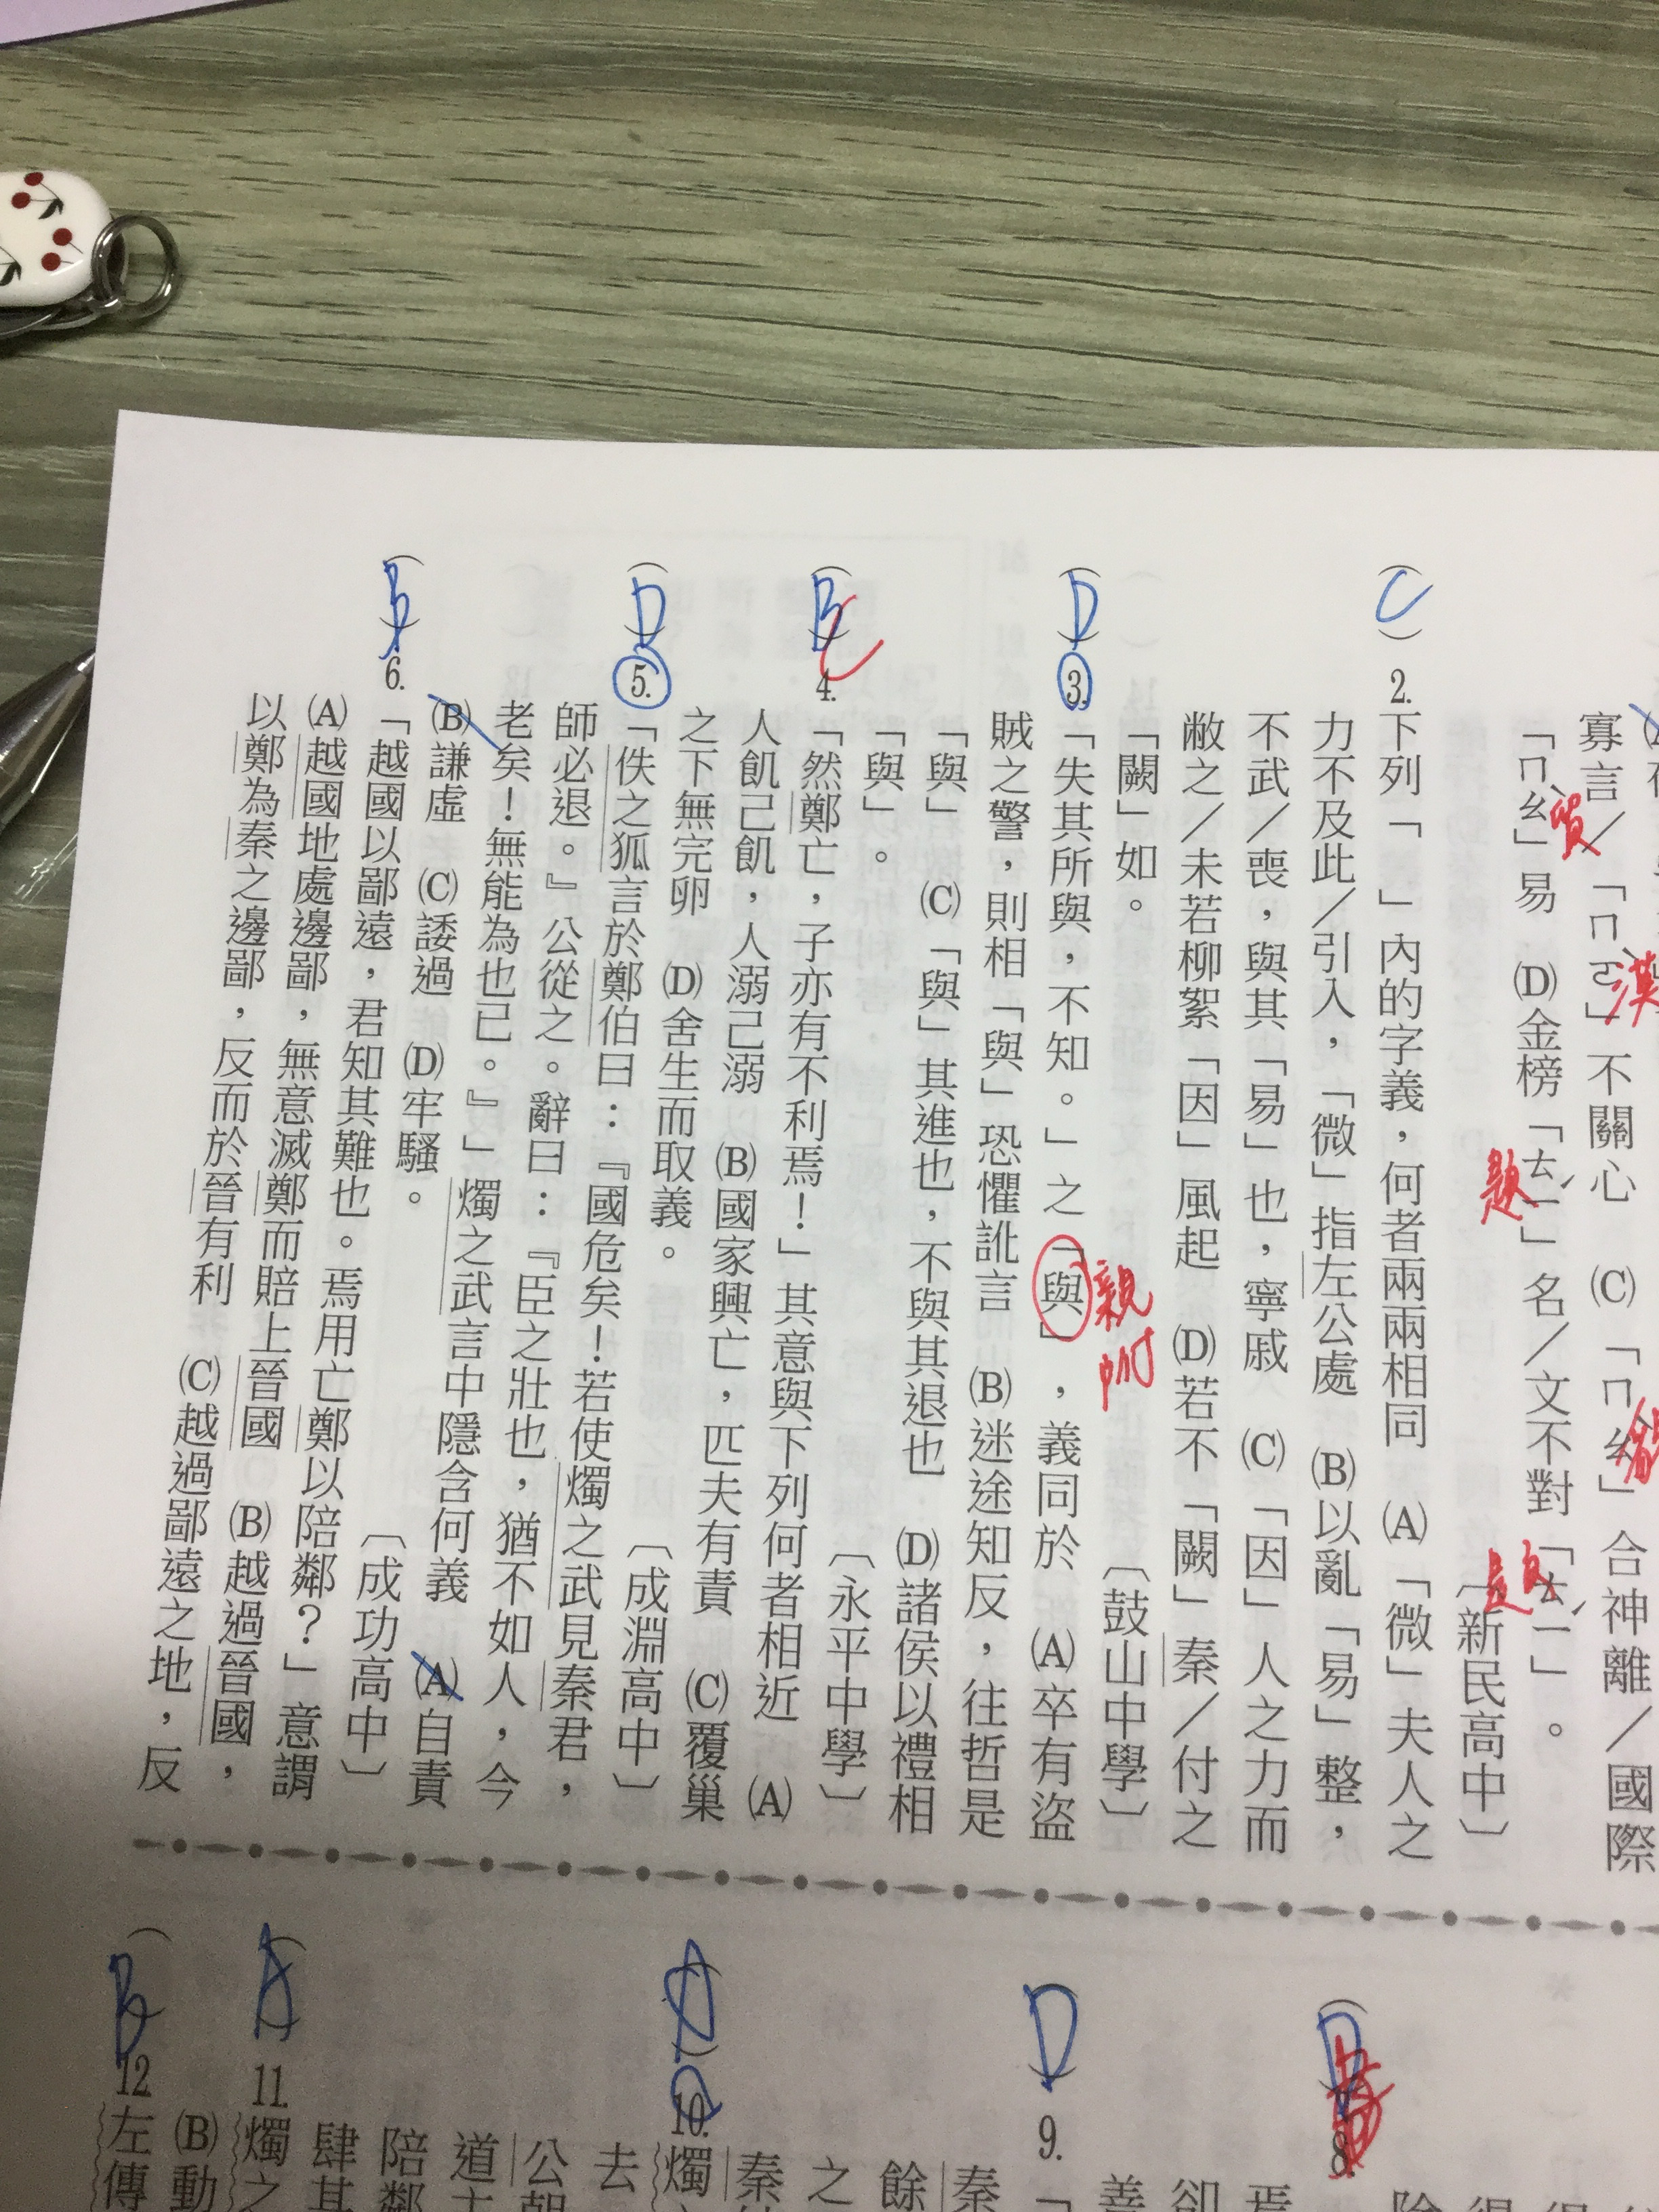 寡言／「ㄏㄢˋ漠」不關心　(C)「ㄏㄠˋ」合神離／國際
「ㄇㄠˋ貿」易　(D)金榜「ㄊㄧˊ題」名／文不對「ㄊㄧˊ題」。
〔新民高中〕
(C) 2. 下列「　」內的字義，何者兩兩相同　(A)「微」夫人之
力不及此／引入，「微」指左公處　(B)以亂「易」整，
不武／喪，與其「易」也，寧戚　(C)「因」人之力而
敝之／未若柳絮「因」風起　(D)若不「闕」秦／付之
「闕」如。
〔鼓山中學〕
(D) 3. 「失其所與，不知。」之「與」，義同於　(A)卒有盜
親附
賊之警，則相「與」恐懼訛言　(B)迷途知反，往哲是
「與」　(C)「與」其進也，不與其退也　(D)諸侯以禮相
「與」。
〔永平中學〕
(B) C 4. 「然鄭亡，子亦有不利焉！」其意與下列何者相近　(A)
人飢己飢，人溺己溺　(B)國家興亡，匹夫有責　(C)覆巢
之下無完卵　(D)舍生而取義。
〔成淵高中〕
(D) 5. 「佚之狐言於鄭伯曰：『國危矣！若使燭之武見秦君，
師必退。』公從之。辭曰：『臣之壯也，猶不如人，今
老矣！無能為也已。』」燭之武言中隱含何義　(A)自責
(B)謙虛　(C)諉過　(D)牢騷。
〔成功高中〕
(B) 6. 「越國以鄙遠，君知其難也。焉用亡鄭以陪鄰？」意謂
(A)越國地處邊鄙，無意滅鄭而賠上晉國　(B)越過晉國，
以鄭為秦之邊鄙，反而於晉有利　(C)越過鄙遠之地，反
8.
焉
卻
善
(D) 9. 「
秦
餘
之
秦
10. 燭
去
公
道
陪鄰
肆其
(A) 11. 燭之
(B)動
(B) 12 左傳